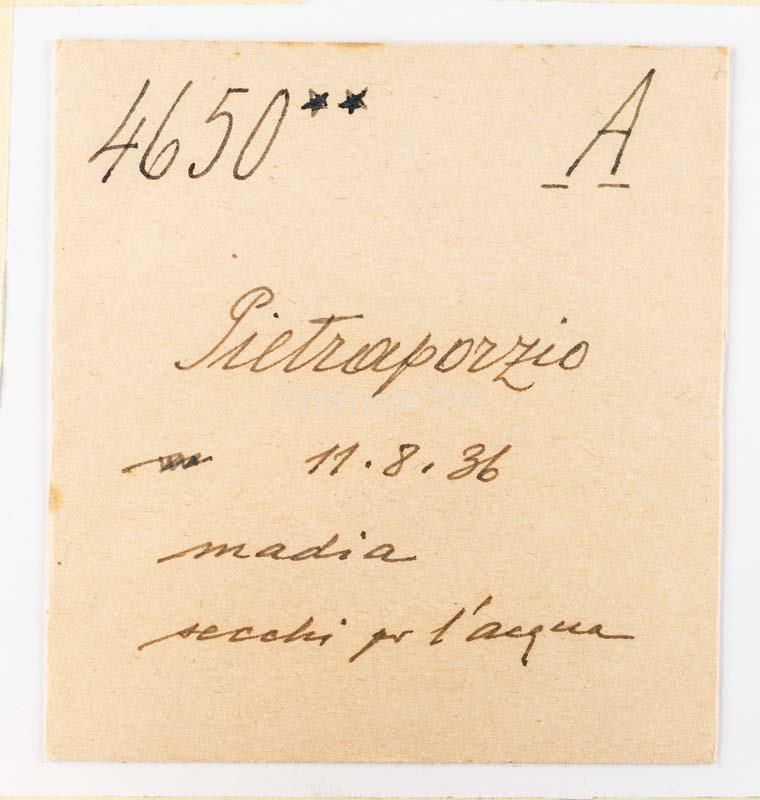 4650** A
Pietraporzio
11.8.36
madia
secchi pr l'acqua